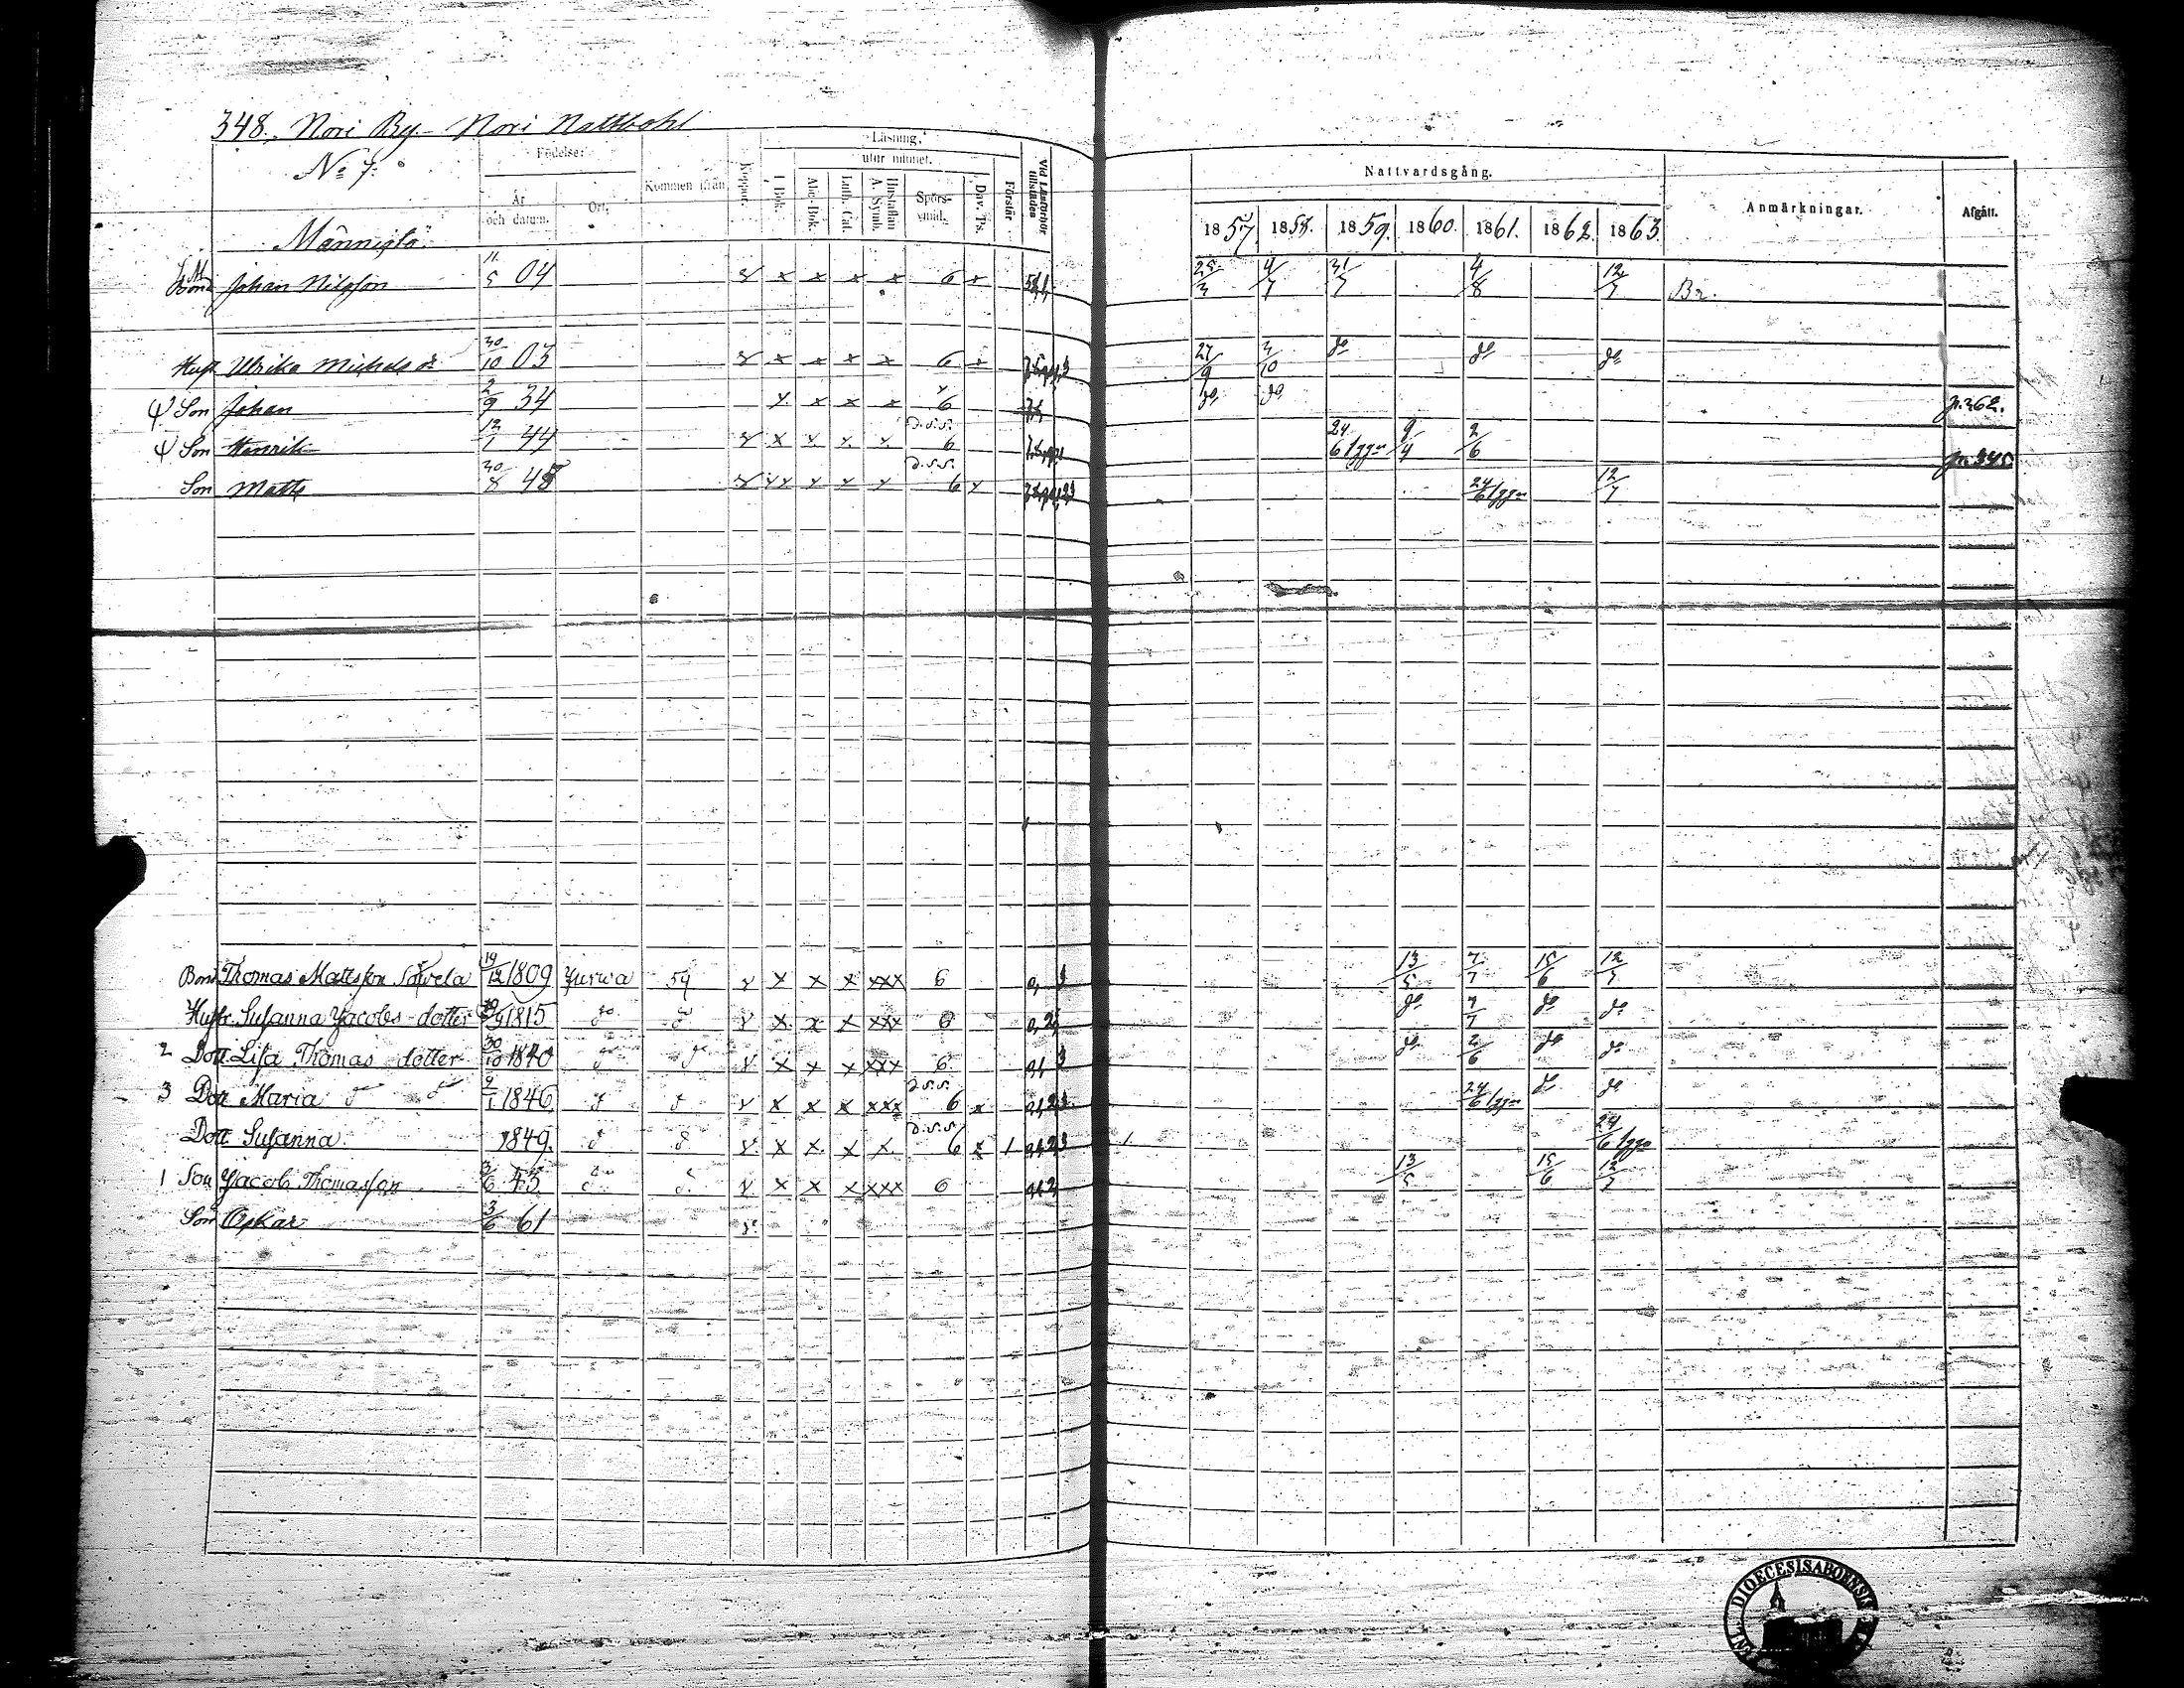 348. Nori By - Nori Nattbohl
No 7.
Männistö
Födelse:
År och datum.
Ort.
Kommen ifrån
Koppor.
Läsning,
utur minnet.
I Bok.
Abc-Bok.
Luth. Cat.
Hustaflan A. Symb.
Spörsmål.
Dav. Ps.
Förstår
Vid Läsförhör tillstädes
Nattvardsgång.
1857. 1858. 1859. 1860. 1861. 1862. 1863.
Anmärkningar.
Afgått.
Johan Nilsson 11/5 04 x x x x 6 x 25/3 4/7 31/7 4/8 12/7 Br.
Hust. Ulrika Michels dr 30/10 03 x x x x 6 x 27/9 3/10 do do do
Son Johan 2/9 34 x x x x 6 do do p. 362.
Son Henrik 12/1 44 x x x x x d.s.s. 6 24/6 1ggn 9/4 2/6 p. 345
Son Matts 30/8 48 x x x x d.s.s. 6 x 24/6 1ggn 12/7
Bond Thomas Mattsson 19/12 1809 Jurva 59 x x x x xxx 6 13/5 7/7 15/6 12/7
Hustr. Susanna Jacobs-dotter 1815 do d x x x x xxx 6 do 7/7 do do
2 Dott. Lisa Thomas dotter 30/10 1840 d d x x x x xxx 6 do 2/6 do do
3 Dott Maria d d 1846 d d x x x x xxx d.s.s. 6 x 24/6 1ggn do do
Dott. Susanna 1849. d d x x x x x d.s.s. 6 x 1 24/6 1ggn
1 Son Jacob Thomasson 3/6 43 d d x x x x xxx 6 13/5 15/6 12/7
Son Oskar 3/6 61
DIOECESIS ABOENSIS